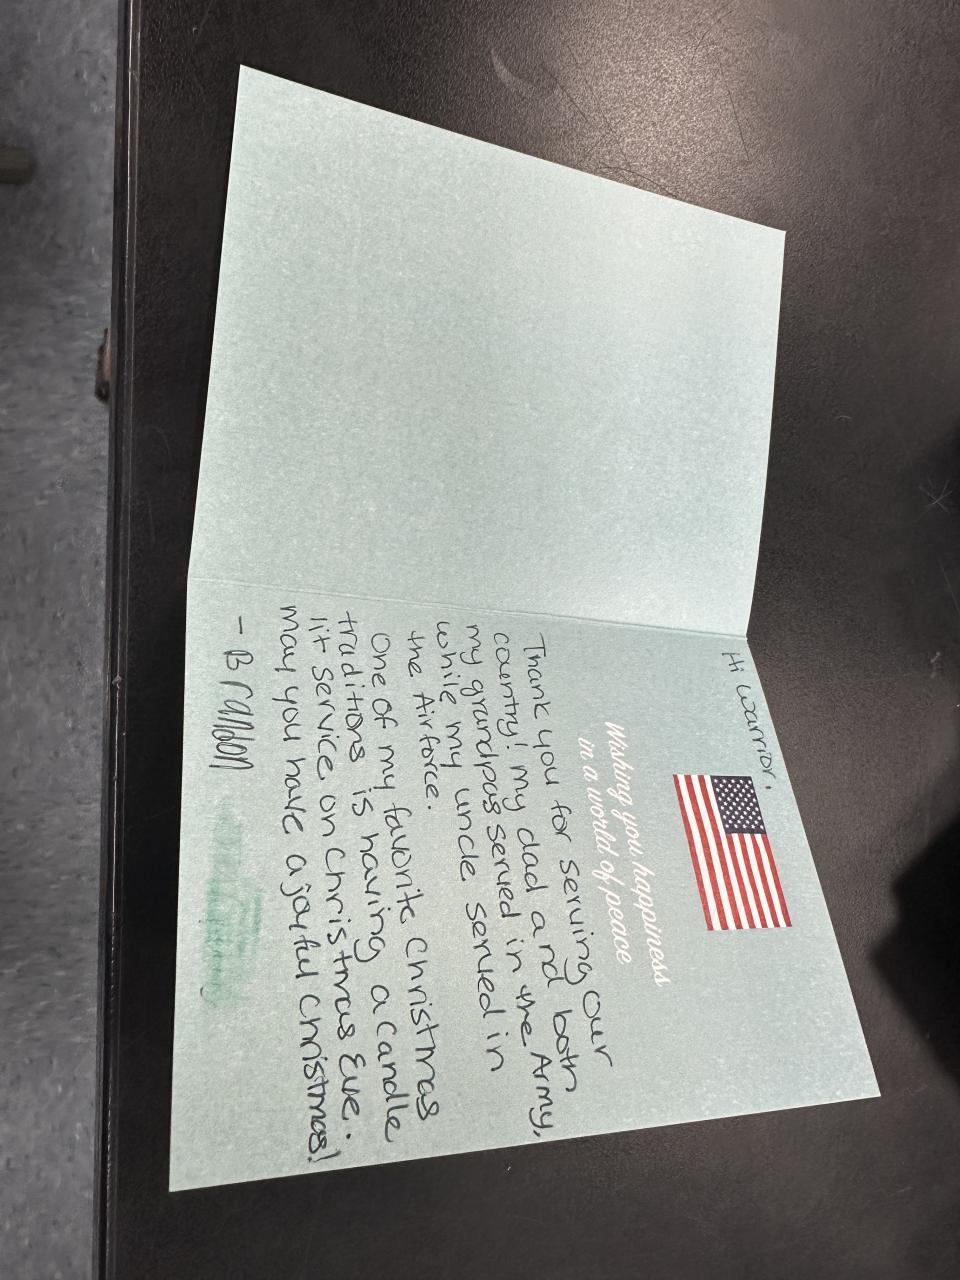 Hi warrior.
Wishing you happiness
in a world of peace
Thank you for serving our
country! my dad and both
my grandpas served in the Army,
while my uncle served in
the Airforce.
One of my favorite Christmas
traditions is having a candle
lit service on Christmas Eve.
may you have a joyful Christmas!
- Brandon